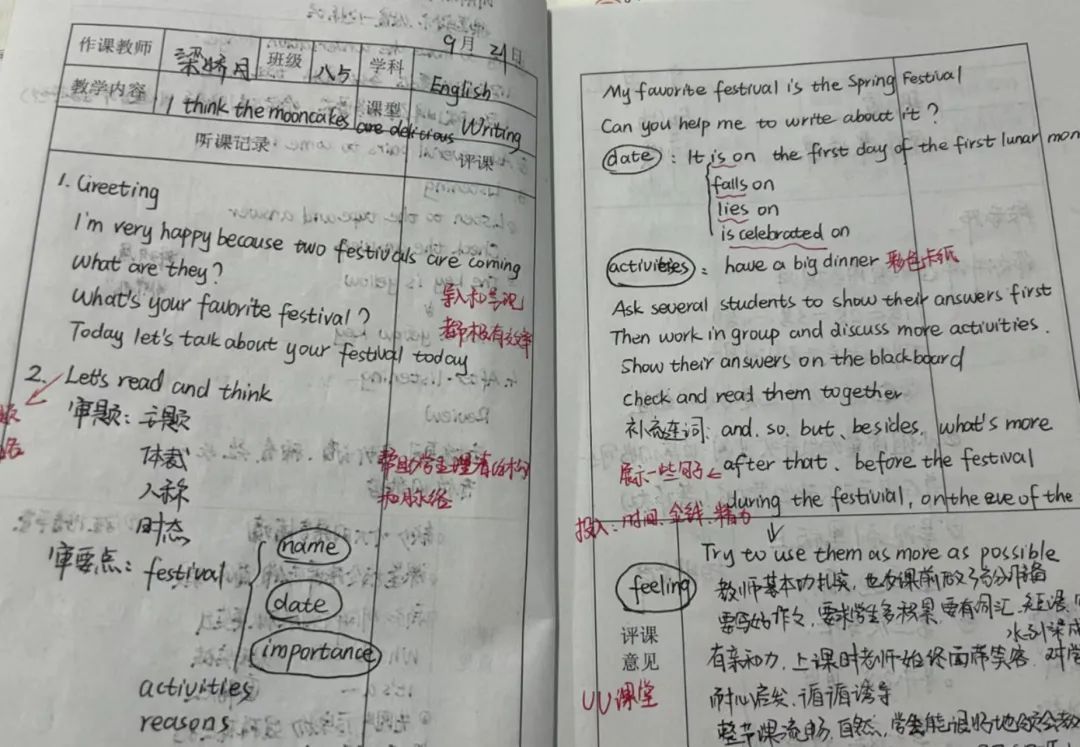 9月21日
作课教师 梁娇月 班级 八5 学科 English
教学内容 I think the mooncakes are delicious 课型 Writing
听课记录 评课
1. Greeting
I'm very happy because two festivals are coming
What are they?
What's your favorite festival?
导入和呈现
都极有效率
Today let's talk about your festival today
2. Let's read and think
审题: 主题
体裁
帮助学生理清结构
和脉络
人称
时态
审要点: festival
name
date
importance
activities
reasons
My favorite festival is the Spring Festival
Can you help me to write about it?
date: It is on the first day of the first lunar mon
falls on
lies on
is celebrated on
activities: have a big dinner 彩色卡纸
Ask several students to show their answers first
Then work in group and discuss more activities.
Show their answers on the blackboard
check and read them together
补充连词: and, so, but, besides, what's more
展示一些句子 after that, before the festival
during the festivial, on the eve of the
投入: 时间、金钱、精力
Try to use them as more as possible
feeling
教师基本功扎实, 也在课前做了充分准备
要写好作文, 要求学生多积累, 要有词汇, 短语,
水到渠成
评课意见
有亲和力, 上课时老师始终面带笑容, 对学
UU课堂
耐心启发、循循诱导
整节课流畅、自然, 学生能很好地领会教